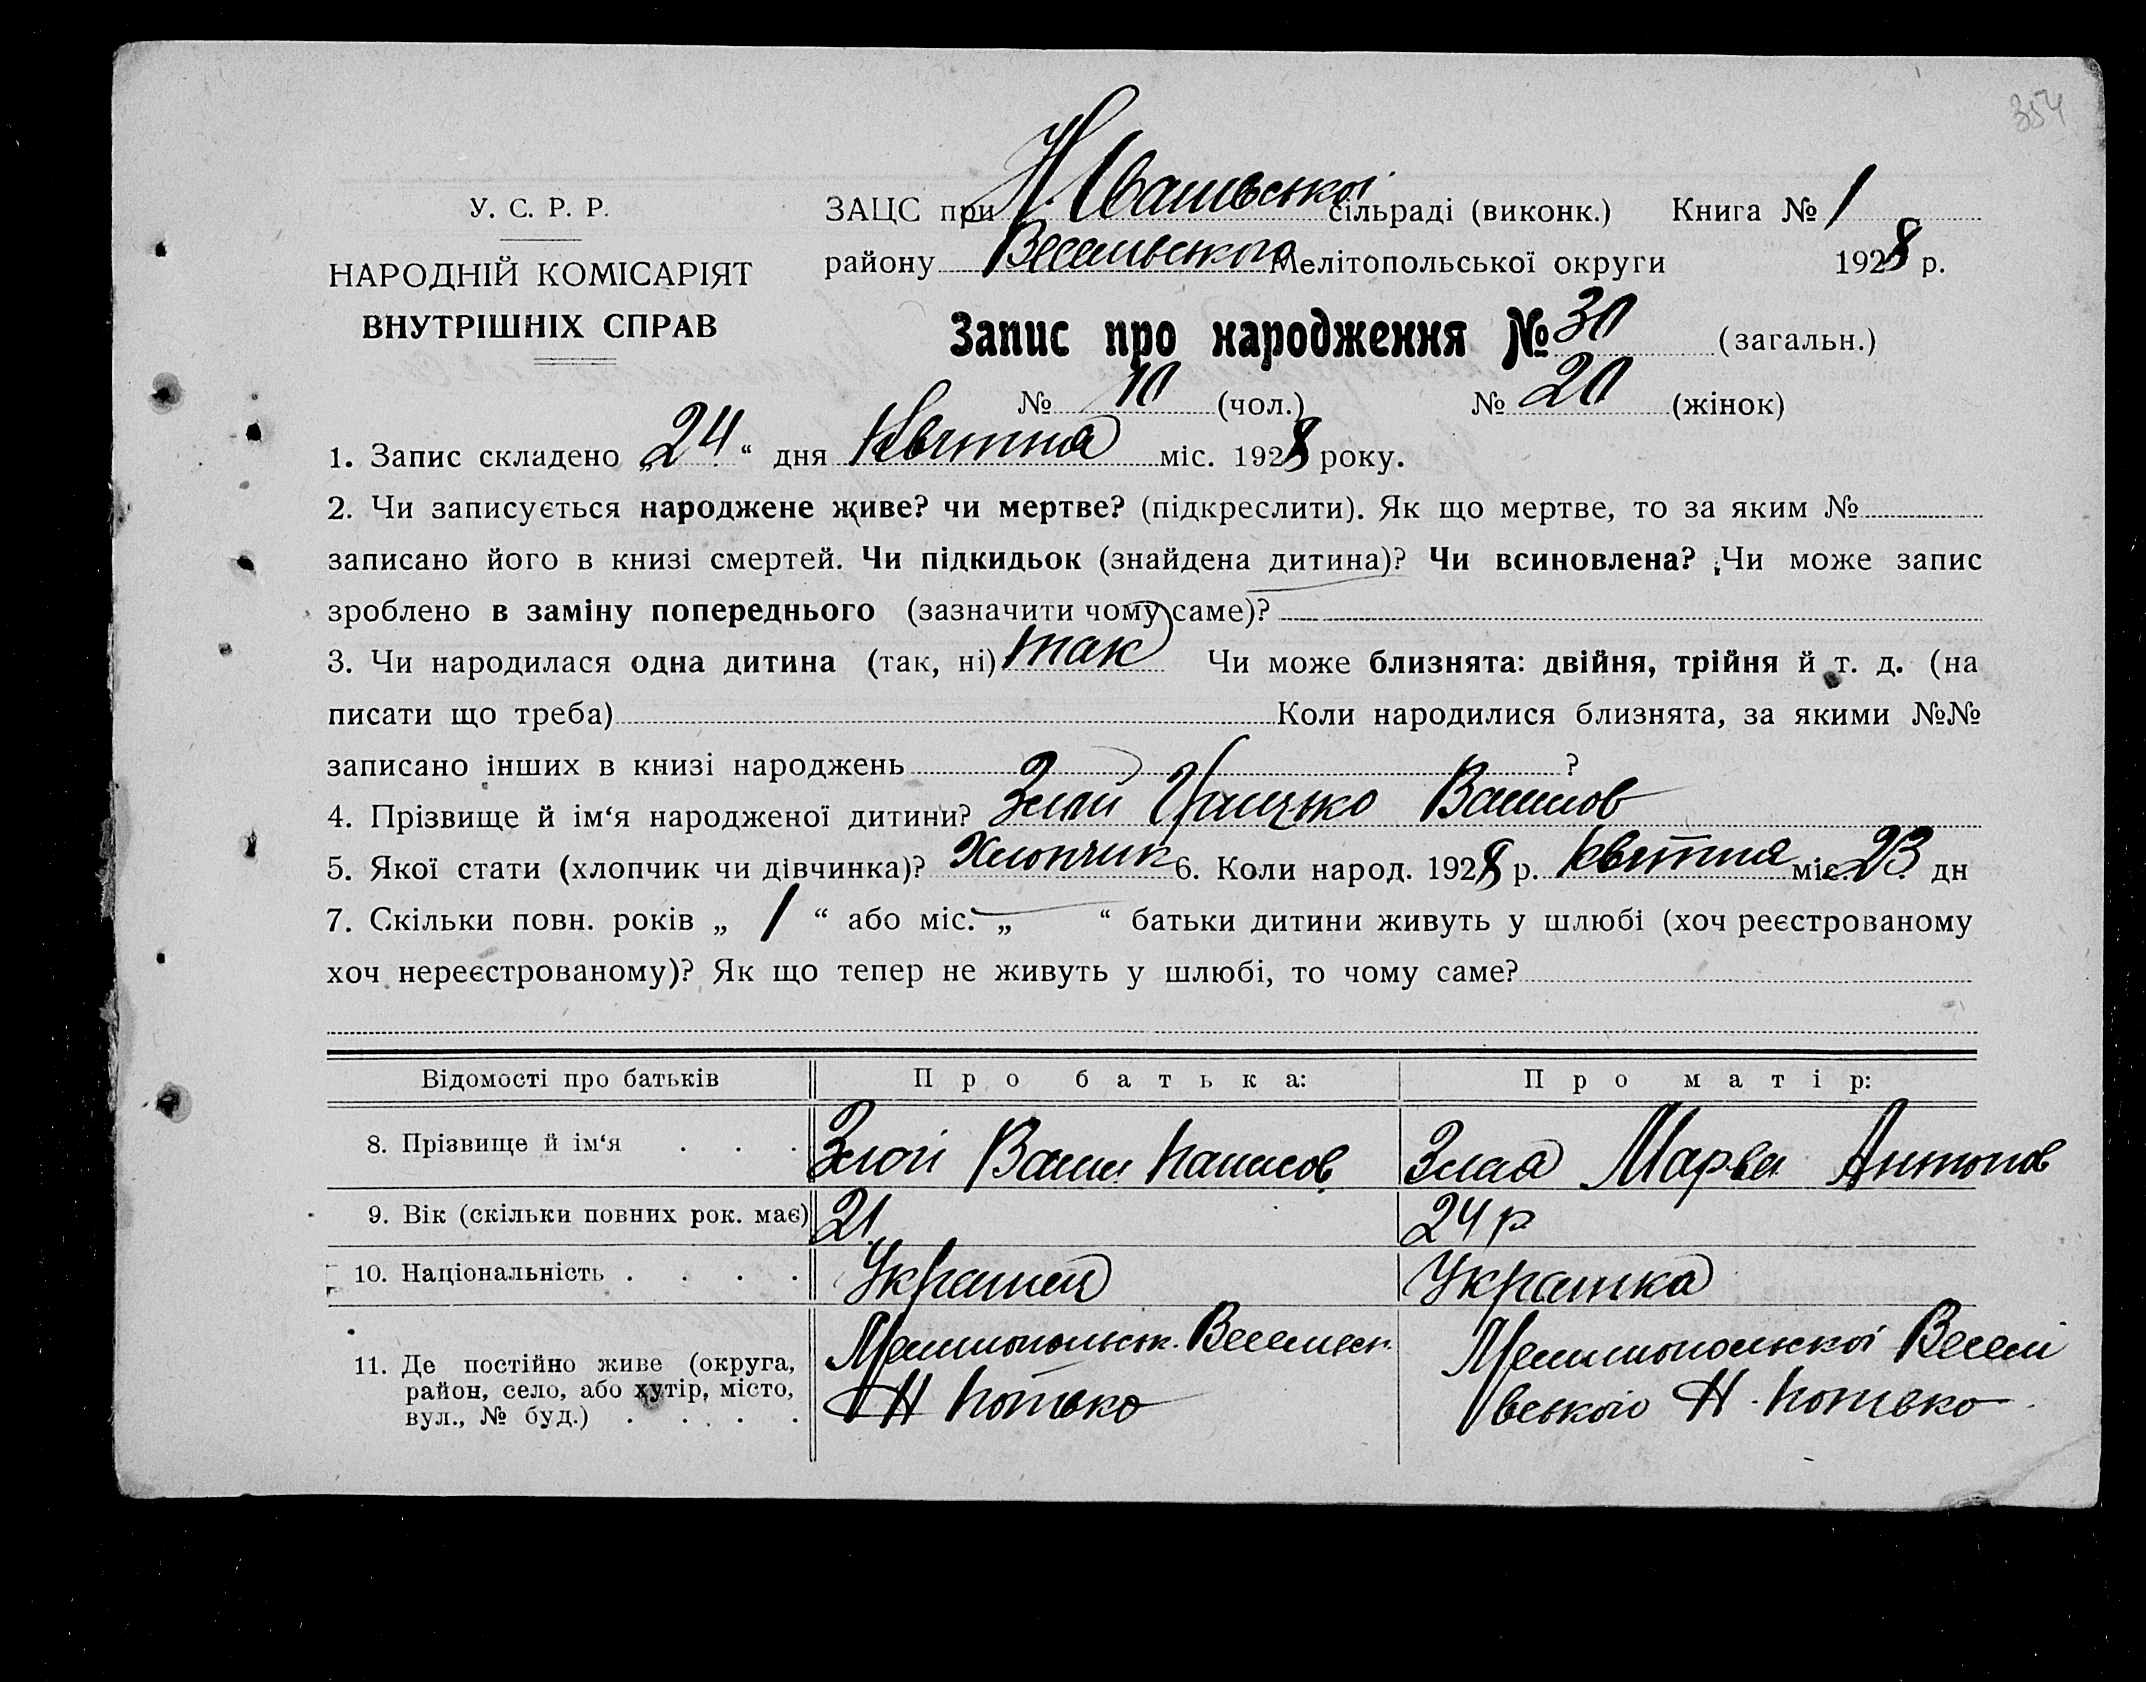 354
У. С. Р. Р.
НАРОДНІЙ КОМІСАРІЯТ
ВНУТРІШНІХ СПРАВ
ЗАЦС при Н. Івашівської сільраді (виконк.) Книга № 1
району Веселівського Мелітопольської округи 1928 р.
Запис про народження № 30 (загальн.)
№ 10 (чол.) № 20 (жінок)
1. Запис складено „24“ дня Квітня міс. 1928 року.
2. Чи записується народжене живе? чи мертве? (підкреслити). Як що мертве, то за яким №
записано його в книзі смертей. Чи підкидьок (знайдена дитина)? Чи всиновлена? Чи може запис
зроблено в заміну попереднього (зазначити чому саме)?
3. Чи народилася одна дитина (так, ні) так Чи може близнята: двійня, трійня й т. д. (на
писати що треба) Коли народилися близнята, за якими №№
записано інших в книзі народжень ?
4. Прізвище й ім‘я народженої дитини? Злой Грицько Васильов
5. Якої стати (хлопчик чи дівчинка)? Хлопчик 6. Коли народ. 1928 р. квітня міс. 23 дн
7. Скільки повн. років „ 1 “ або міс. „ — “ батьки дитини живуть у шлюбі (хоч реєстрованому
хоч нереєстрованому)? Як що тепер не живуть у шлюбі, то чому саме?
Відомості про батьків Про батька: Про матір:
8. Прізвище й ім‘я . . . Злой Васил Злая Марва Антонов
9. Вік (скільки повних рок. має) 21 24 р
10. Національність . . . . Українец Українка
11. Де постійно живе (округа, район, село, або хутір, місто, вул., № буд.) . . . .
Мелітопольськ. Веселівськ.
Н
Мелітопольської Веселі
вського Н.